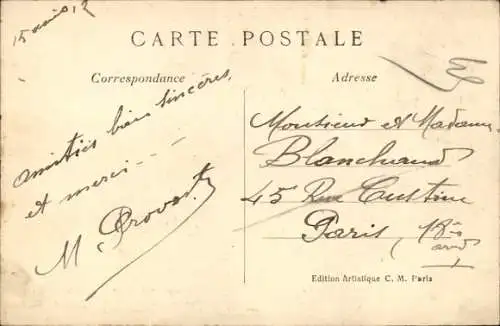 15 août 12
CARTE POSTALE
Correspondance
Adresse
amitiés bien sincères
et merci ---
M Provost
Monsieur et Madame
Blanchaud
45 Rue Custine
Paris, 18e
arrd
Edition Artistique C. M. Paris